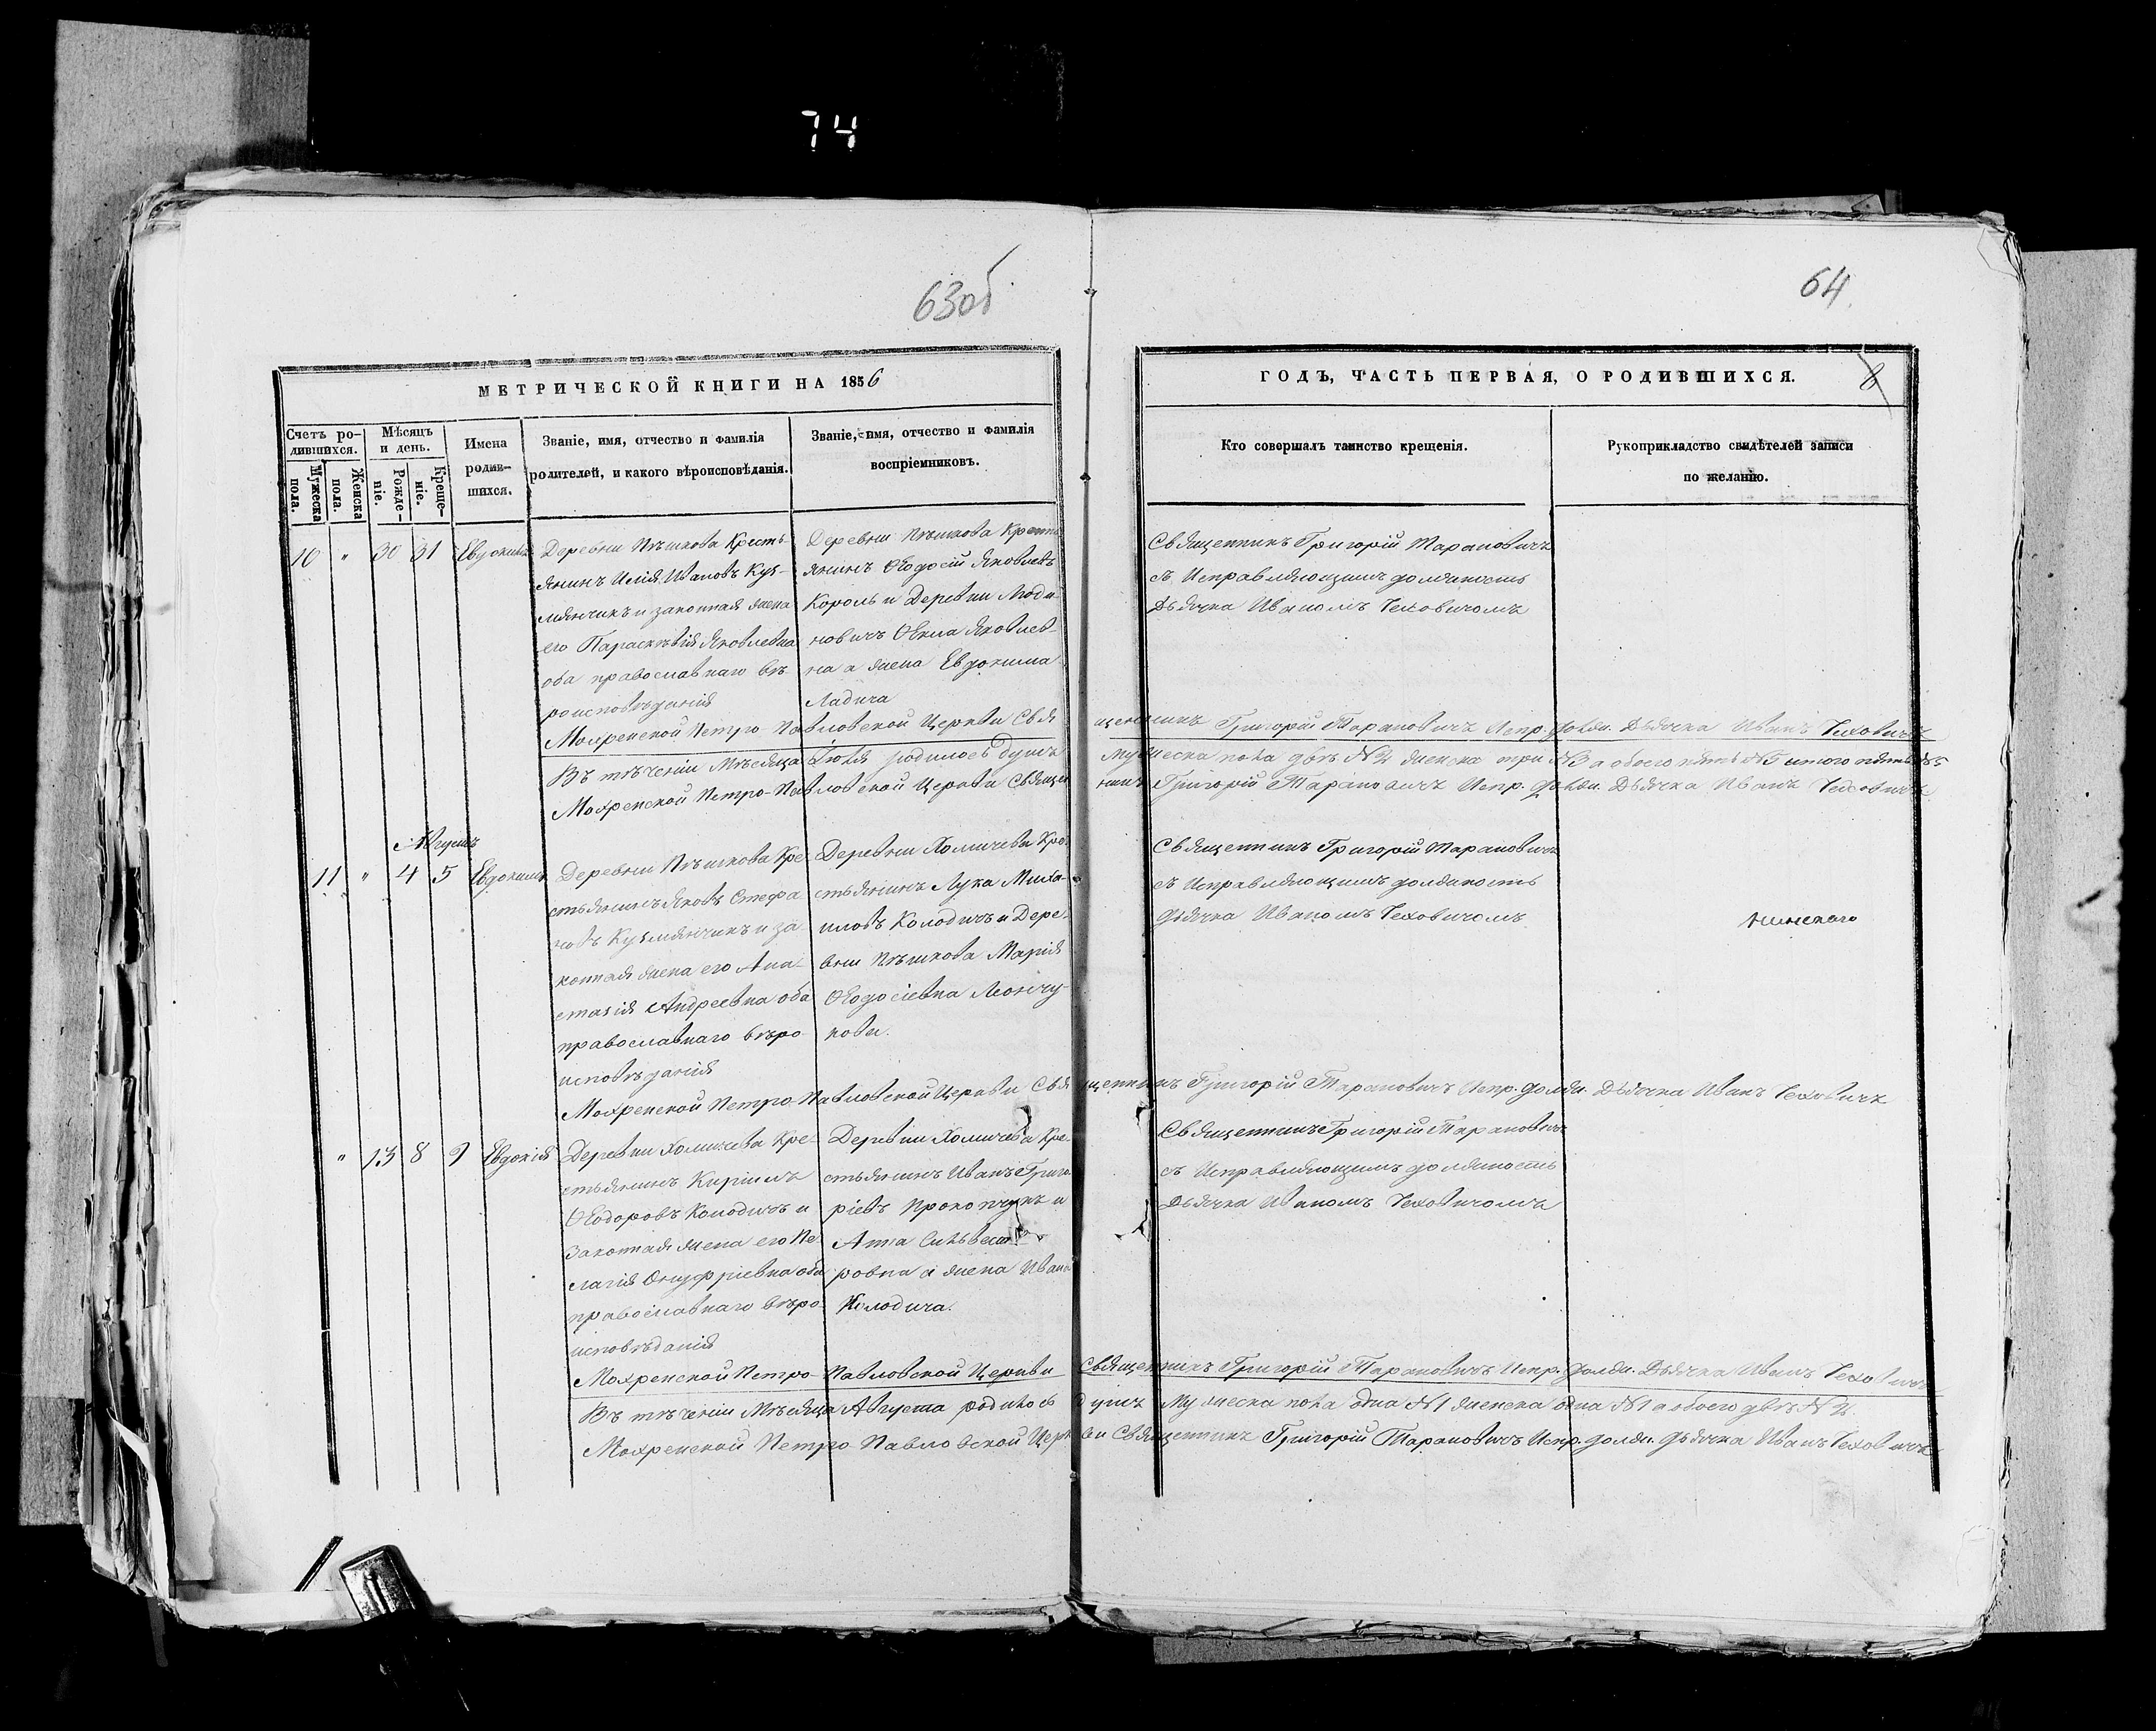 74
63об
64
МЕТРИЧЕСКОЙ КНИГИ НА 1856
ГОДЪ, ЧАСТЬ ПЕРВАЯ, О РОДИВШИХСЯ.
8
Счетъ ро-
дившихся.
Мужеска
пола.
Женска
пола.
Мѣсяцъ
и день.
Рожде-
ніе.
Креще-
ніе.
Имена
родив-
шихся.
Званіе, имя, отчество и фамилія
родителей, и какого вѣроисповѣданія.
Званіе, имя, отчество и фамилія
воспріемниковъ.
Кто совершалъ таинство крещенія.
Рукоприкладство свидѣтелей записи
по желанію.
10 " 30 31 Евдокимъ
Деревни Пѣшкова Кресть-
янинъ Илія Ивановъ Куз-
мянчикъ и законная жена
его Параскѣвія Яковлевна
оба православнаго вѣ-
роисповѣданія
Деревни Пѣшкова Кресть
янинъ Ѳеодосій Яковлевъ
Король и Деревни
новичъ Ѳекла Яковлев-
на а жена Евдокима
Ладича
Священникъ Григорій Тарановичъ
съ Исправляющимъ должность
Дьячка Иваномъ Чеховичомъ
Мохренской Петро Павловской Церкви Священникъ Григорій Тарановичъ Испр. должн. Дьячка Иванъ Чеховичъ
Въ тѣченіи Мѣсяца Іюля родилось душъ мужеска пола двѣ №2 женска три №3 а обоего пять №5 итого пять №5
Мохренской Петро-Павловской Церкви Священникъ Григорій Тарановичъ Испр. должн. Дьячка Иванъ Чеховичъ
Августъ
11 " 4 5 Евдокимъ
Деревни Пѣшкова Кре-
стьянинъ Яковъ Стефа
новъ Кузмянчикъ и за
конная жена его Ана-
стазія Андреевна оба
православнаго вѣро-
исповѣданія
Деревни Хомичева Кре-
стьянинъ Лука Миха-
иловъ Колодичъ и Дере-
вни Пѣшкова Марія
Ѳеодосіевна Леончу-
кова.
Священникъ Григорій Тарановичъ
съ Исправляющимъ должность
Дьячка Иваномъ Чеховичомъ
Мохренской Петро-Павловской Церкви Священникъ Григорій Тарановичъ Испр. должн. Дьячка Иванъ Чеховичъ
" 13 8 9 Евдокія
Деревни Хомичева Кре-
стьянинъ Кирилъ
Ѳеодоровъ Колодичъ и
Законная жена его Пе
лагія Онуфріевна оба
православнаго вѣро-
исповѣданія
Деревни Хомичева Кре-
стьянинъ Иванъ Григо
ріевъ Прокопчукъ и
Анна Сильвест
ровна а жена Ивана
Колодича.
Священникъ Григорій Тарановичъ
съ Исправляющимъ должность
Дьячка Иваномъ Чеховичомъ
Мохренской Петро-Павловской Церкви Священникъ Григорій Тарановичъ Испр. должн. Дьячка Иванъ Чеховичъ
Въ тѣченіи Мѣсяца Августа родилось душъ мужеска пола одна №1 женска одна №1 а обоего двѣ №2.
Мохренской Петро-Павловской Церкви Священникъ Григорій Тарановичъ Испр. должн. Дьячка Иванъ Чеховичъ